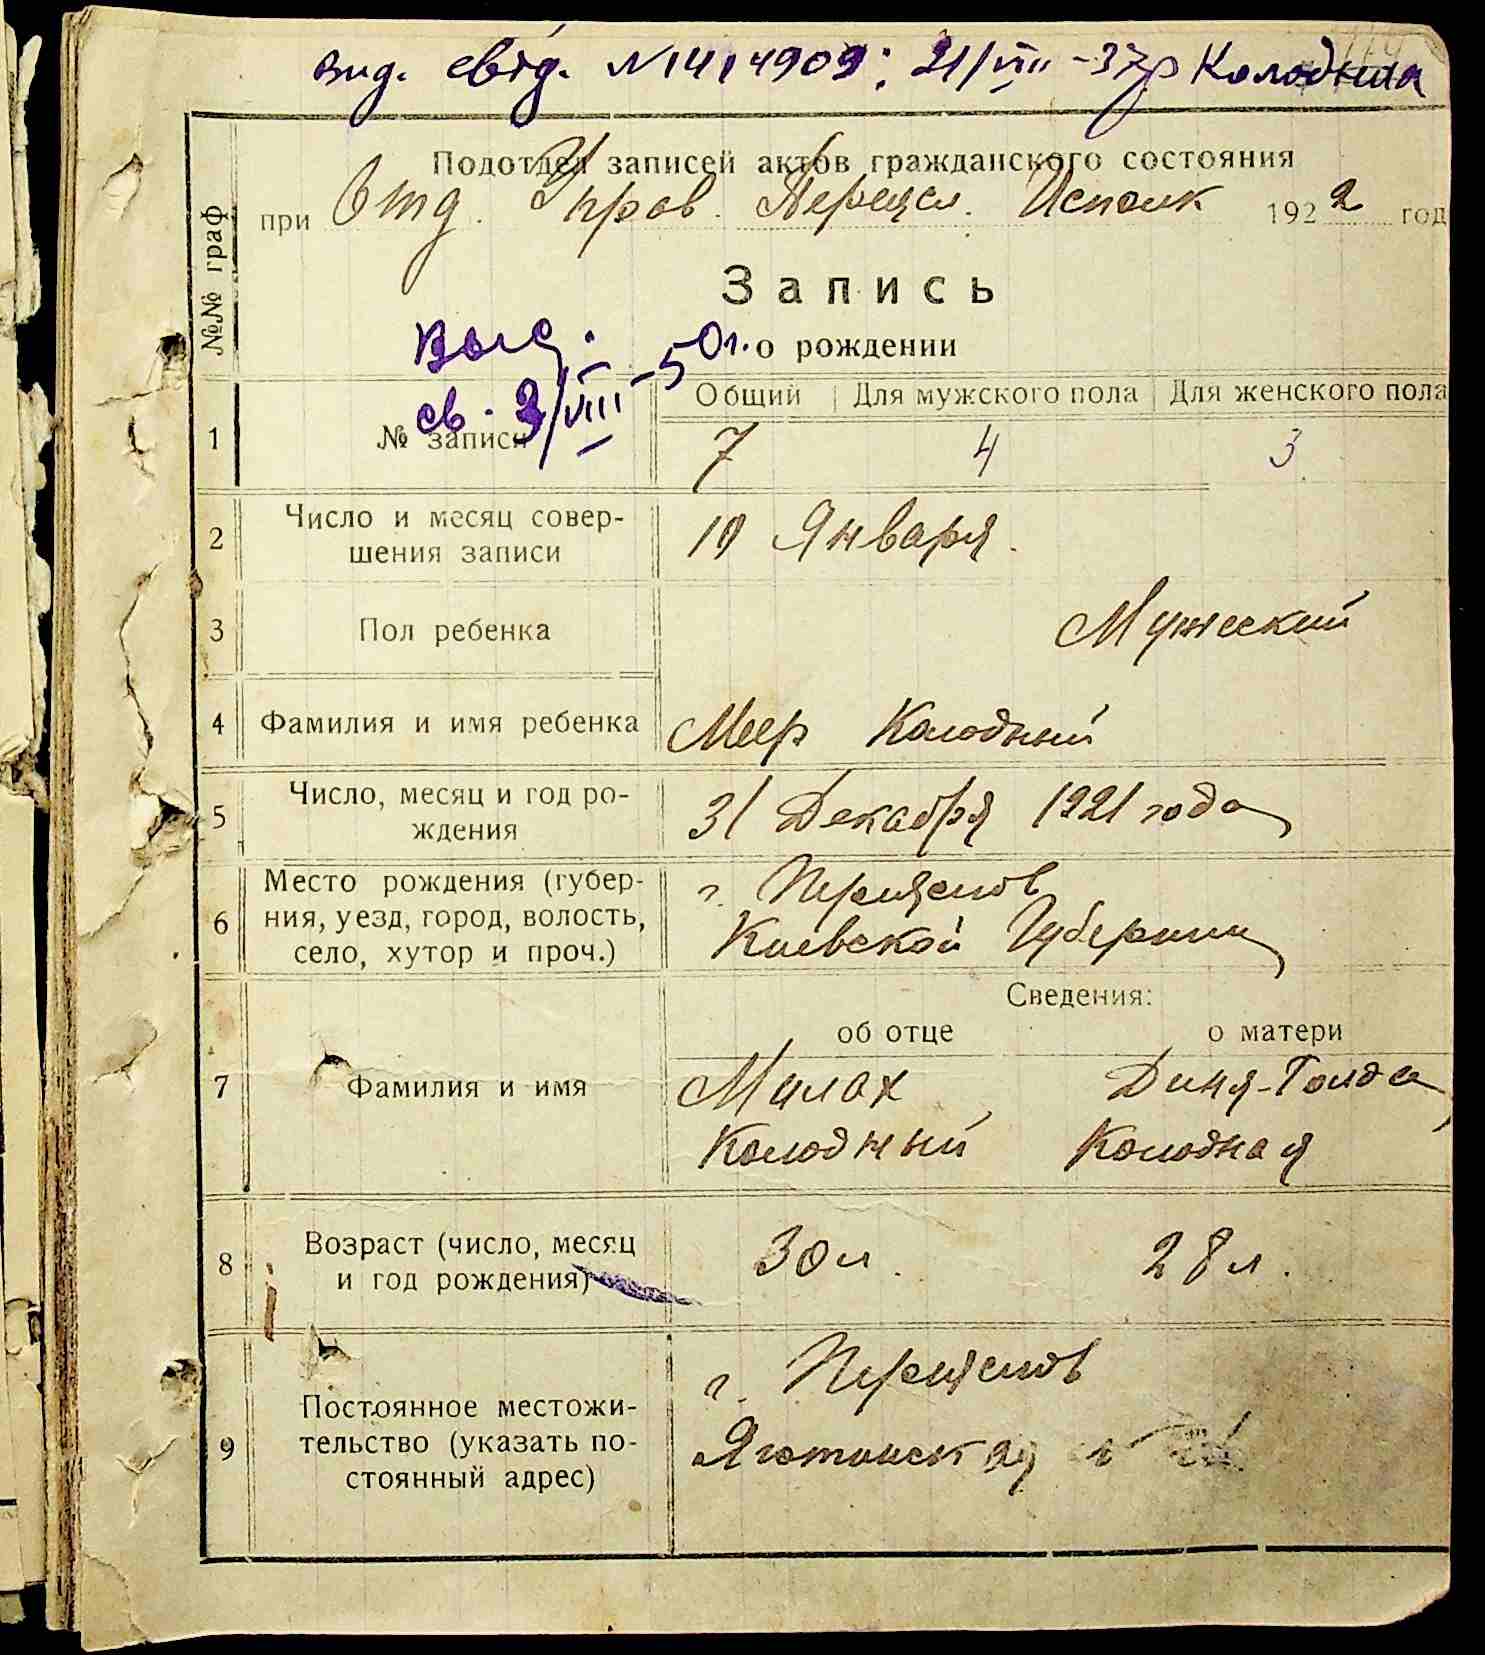 вид. свід. N1414909: 21/VIII-37р Колодний
Подотдел записей актов гражданского состояния
при Отд. Упров. Переясл. Исполк 1922 год
№№ граф
Запись
о рождении
Выд.
св. 3/VIII-50г.
Общий Для мужского пола Для женского пола
1 № записи 7 4 3
2 Число и месяц совер-
шения записи 10 Января.
3 Пол ребенка Мужеский
4 Фамилия и имя ребенка Меер Колодный
5 Число, месяц и год ро-
ждения 31 Декабря 1921 года
6 Место рождения (губер-
ния, уезд, город, волость,
село, хутор и проч.)
г. Переяслов
Киевской Губернии
Сведения:
об отце о матери
7 Фамилия и имя
Малах Диня-Голда
Колодный Колодная
8 Возраст (число, месяц
и год рождения) 30 л. 28 л.
9 Постоянное местожи-
тельство (указать по-
стоянный адрес)
г. Переяслов
Яготинская